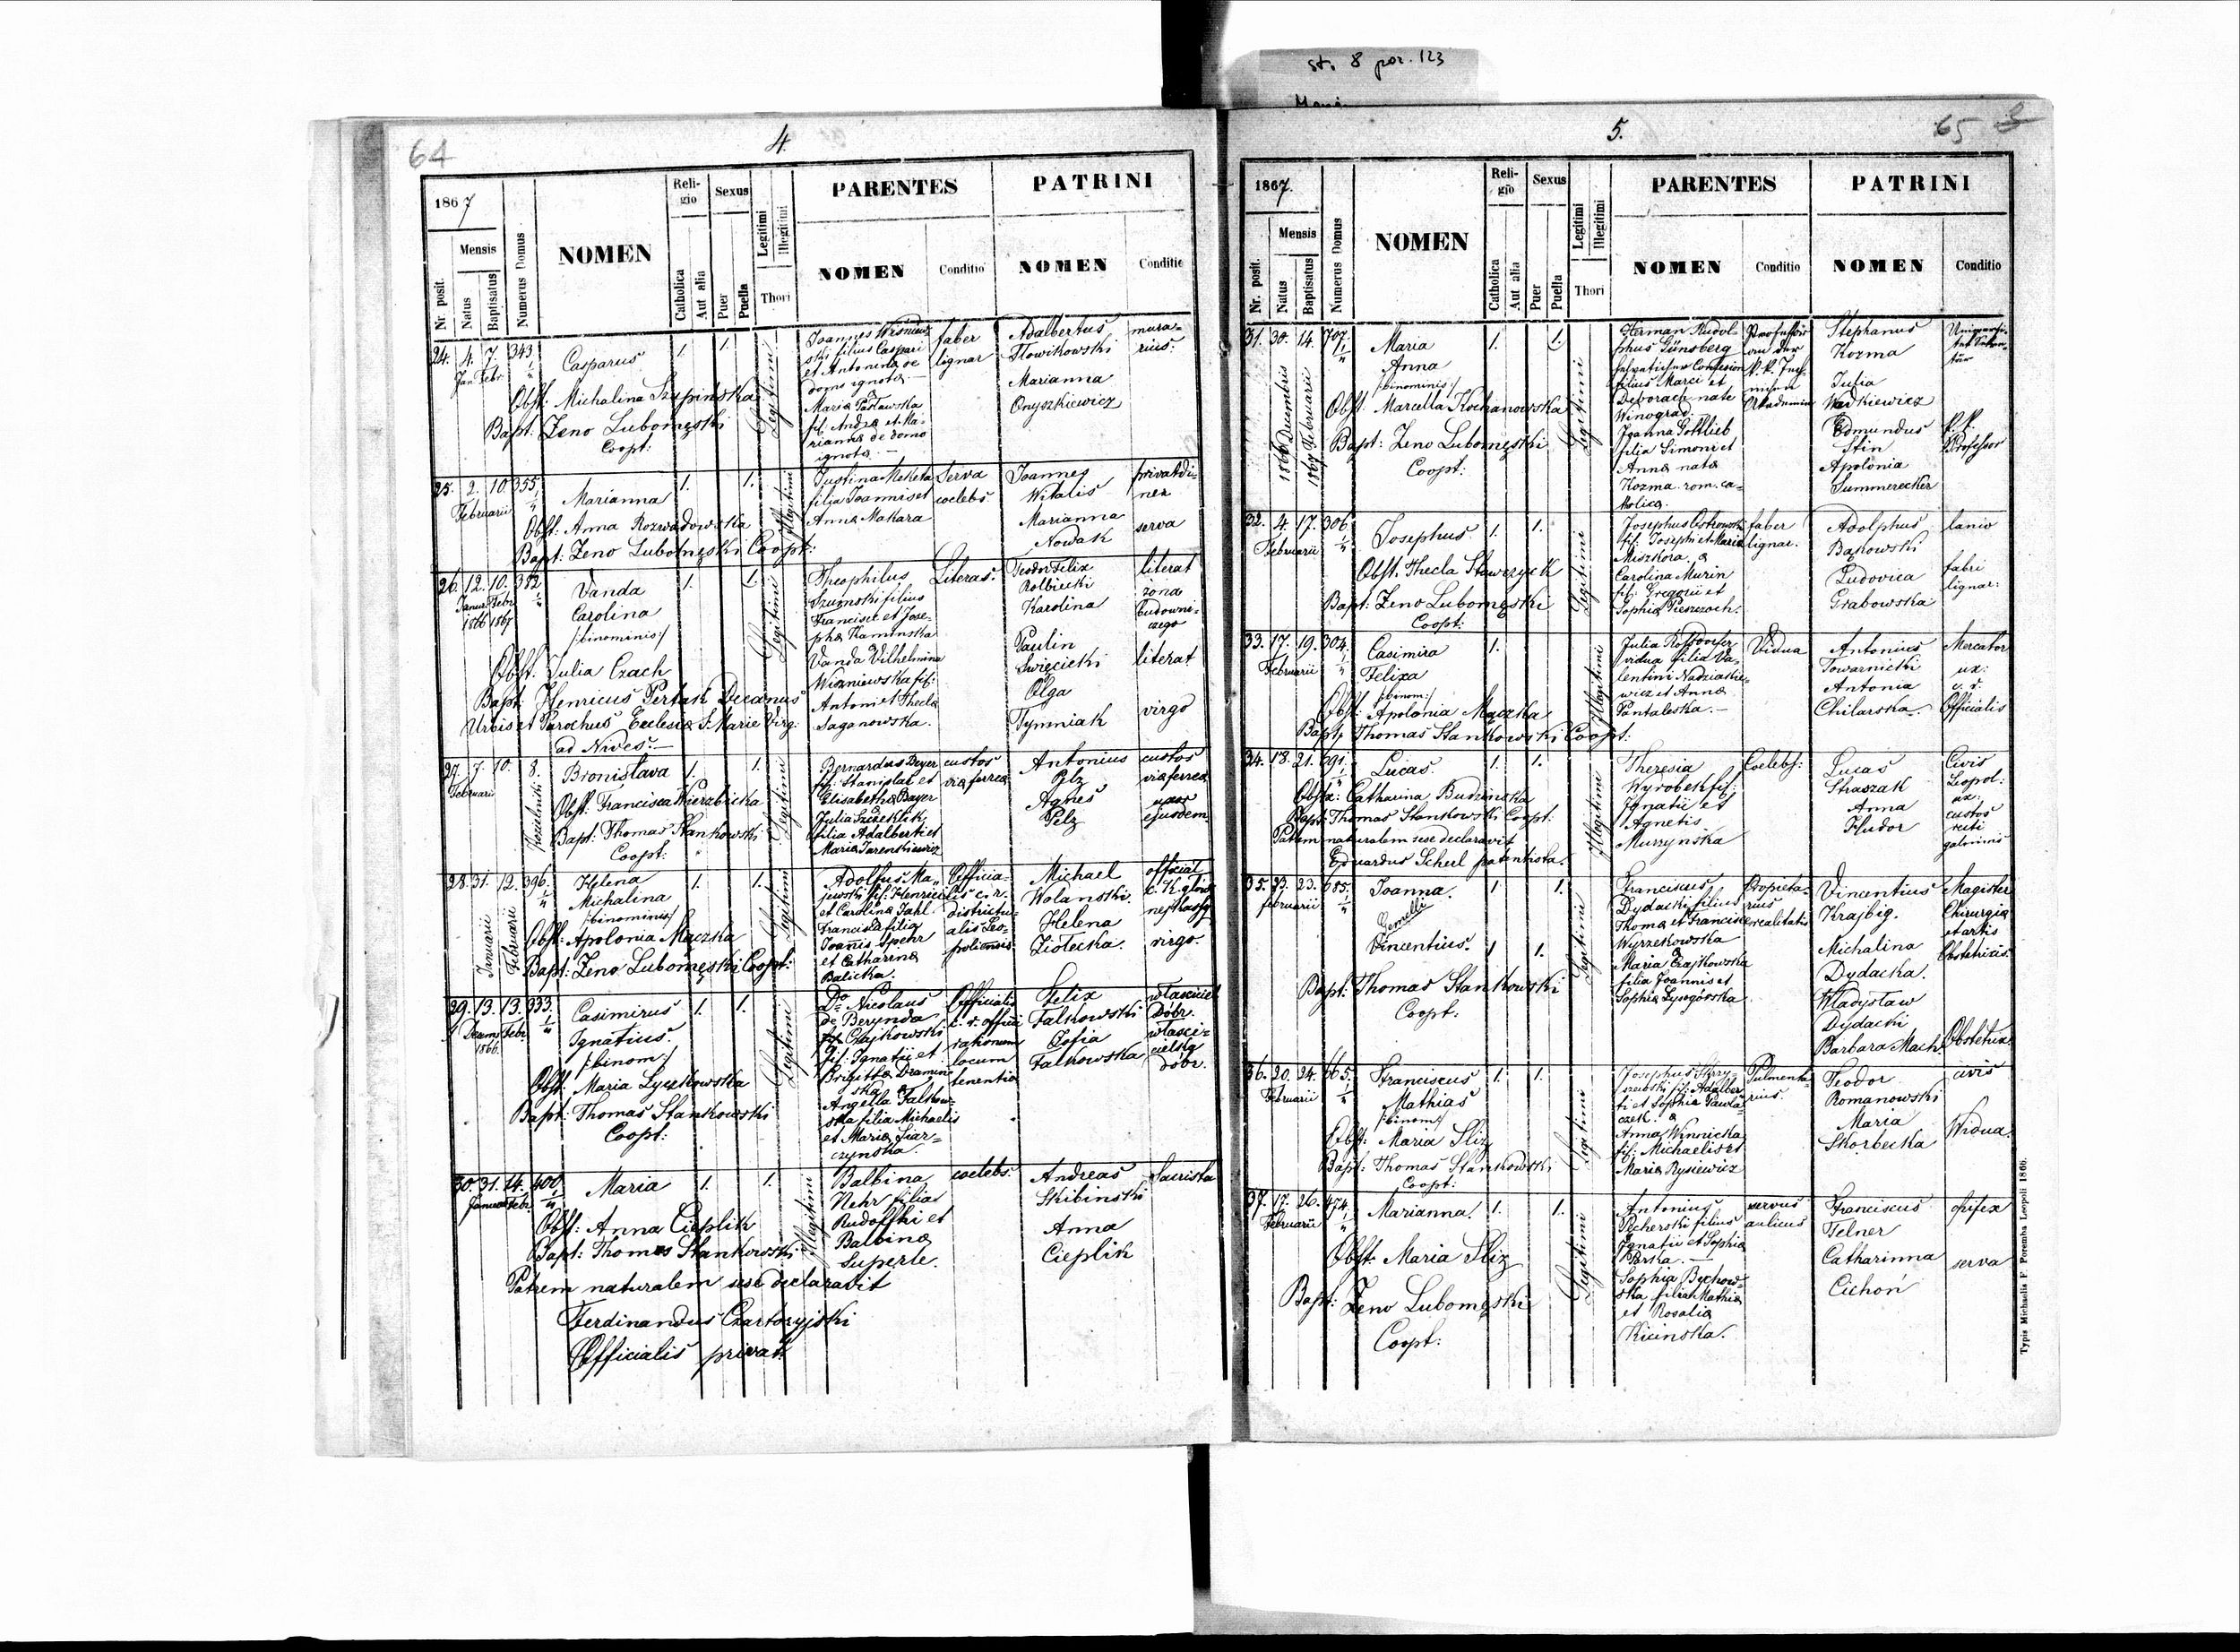 st. 8 poz. 123
64
4
1867
Reli-
gio
Sexus
PARENTES
PATRINI
Mensis
Nr. posit.
Natus
Baptisatus
Numerus Domus
NOMEN
Catholica
Aut alia
Puer
Puella
Legitimi
Illegitimi
Thori
NOMEN
Conditio
NOMEN
Conditio
24. 4. 7. 343
Jan Febr
Casparus
1. 1.
Obst. Michalina Szupinska
Bapt. Zeno Lubomęski
Coopt:
Legitimi
Joannes
ski filius Caspari
et Antonina de
domo ignota
Maria Pasławska
fil. Andreæ et Ma-
rianna de domo
ignota
faber
lignar
Adalbertus
Słowikowski
Marianna
Onyszkiewicz
mura-
rius.
25. 2. 10. 355
Februarii
Marianna
1. 1.
Obst. Anna Rozwadowska
Bapt: Zeno Lubomęski Coopt:
Illegitimi
Justina Meketa
filia Joannis et
Anna Makara
Serva
coelebs
Joannes
Witalis
Marianna
Nowak
privatdi-
ner
serva
26. 12. 10. 382
Januar Febr
1866 1867
Vanda
Carolina
/:binominis:/
1. 1.
Obst. Julia Czach
Bapt. Henricus Pertak Decanus
Urbis et Parochus Ecclesiæ S. Mariæ Virg:
ad Nives.—
Legitimi
Theophilus
Szumski filius
Francisci et Jose-
pha Kaminska
Vanda Vilhelmina
Wiszniewska fil:
Antoni et Thecla
Saganowska.
Literas.
Teodor Felix
Rolbiecki
Karolina
Paulin
Swięcicki
Olga
Tymniak
literat
żona
budowni-
czego
literat
virgo
27. 7. 10. 8.
Februarii
Bronislava
1. 1.
Obst. Francisca Wierzbicka
Bapt: Thomas Stankowski
Coopt:
Legitimi
Bernardus Beyer
fil: Stanislai et
Elisabetha Bayer
Julia
filia Adalberti et
Maria
custos
viæ ferreæ
Antonius
Pelz
Agnes
Pelz
custos
viæ ferreæ
uxor
ejusdem
28. 31. 12. 396.
Januarii
Februarii
Helena
Michalina
/:binominis:/
1. 1.
Obst: Apolonia Mączka
Bapt: Zeno Lubomęski Coopt:
Legitimi
Adolfus Ma-
jewski fil: Henrici
et Carolina Jahl.
Francisca filia
Joannis Spehr
et Catharina
Balicka.
Officia-
lis c. r.
districtu-
alis Leo-
poliensis
Michael
Wolanski.
Helena
Ziołecka.
official
c. K. głów
nej kassy
virgo.
29. 13. 13. 933.
Decemb Febr
1866.
Casimirus
Ignatius.
/:binom:/
1. 1.
Obst. Maria Lyczkowska
Bapt: Thomas Stankowski
Coopt:
Legitimi
Do Nicolaus
de Berynda
Czajkowski
fil: Ignatii et
Brigitta Dramin
ska &
Angella Falkow-
ska filia Michaelis
et Maria Siar-
czynska.
Officialis
c. r. offici
rationum
locum
tenentia
Felix
Falkowski
Zofia
Falkowska
właściciel
Dóbr.
właści-
cielka
dóbr.
30. 31. 14. 400
Januar Febr.
Maria
1. 1.
Obst: Anna Cieplik
Bapt: Thomas Stankowski
Patrem naturalem sese declaravit
Ferdinandus Czartoryjski
Officialis privat:
Illegitimi
Balbina
Nehr filia
Rudolphi et
Balbina
Superle.
coelebs.
Andreas
Skibinski
Anna
Cieplik
Sacrista
5.
65
1867.
Reli-
gio
Sexus
PARENTES
PATRINI
Mensis
Nr. posit.
Natus
Baptisatus
Numerus Domus
NOMEN
Catholica
Aut alia
Puer
Puella
Legitimi
Illegitimi
Thori
NOMEN
Conditio
NOMEN
Conditio
31. 30. 14. 707
1866 Decembris
1867 Februarii
Maria
Anna
/:binominis:/
1. 1.
Obst. Marcella Kochanowska
Bapt: Zeno Lubomęski
Coopt:
Legitimi
Herman Rudol-
phus Günsberg
helvetischer Confession
filius Marci et
Deborach nate
Winograd.
Joanna Gottlieb
filia Simoni et
Anna nata
Kozma rom. ca-
tholica.
Professor
an der
k. k. Tech-
nischen
Akademie
Stephanus
Kozma
Julia
Wadkiewicz
Edmundus
Stin
Apolonia
Summerecker
k. k.
Professor
32. 4. 17. 306
Februarii
Josephus.
1. 1.
Obst. Thecla Stawczyck
Bapt: Zeno Lubomęski
Coopt:
Legitimi
Josephus Ostrowski
fil: Josephi et Maria
Miszkora &
Carolina Murin
fil: Gregorii et
Sophia
faber
lignar.
Adolphus
Bąkowski
Ludovica
Grabowska
lanio
fabri
lignar:
33. 17. 19. 304
Februarii
Casimira
Felixa
/:binom:/
1.
Obst: Apolonia Mączka
Bapt: Thomas Stankowski Coopt:
Illegitimi
Julia
vidua filia Va-
lentini Nadziakie-
wicz et Anna
Pantaleska.—
Vidua
Antonius
Towarnicki
Antonia
Chilarska.
Mercator
ux:
c. r.
Officialis
34. 18. 21. 691
Lucas.
1. 1.
Obstx: Catharina Budzinska
Bapt: Thomas Stankowski Coopt:
Patrem naturalem sese declaravit
Eduardus Scherl patentista.
Illegitimi
Theresia
Wyrobek fil:
Ignatii et
Agnetis
Murzynska
Coelebs:
Lucas
Straszak
Anna
Hudor
Civis
Leopol:
ux:
custos
35. 23. 23. 685.
februarii
Joanna.
Gemelli
Vincentius.
1. 1.
1. 1.
Bapt: Thomas Stankowski
Coopt:
Legitimi
Franciscus
Dydacki filius
Thoma et Francisca
Wyrzekowska
Maria Czajkowska
filia Joannis et
Sophia Lysogórska
Propieta-
rius
realitatis
Vincentius
Krajbig.
Michalina
Dydacka.
Władysław
Dydacki
Barbara Mach
Magister
Chirurgiæ
et artis
Obstetricis.
Obstetrix
36. 20. 24. 665.
Februarii
Franciscus
Mathias
/:binom:/
1. 1.
Obst: Maria Sliz
Bapt: Thomas Stankowski
Coopt:
Legitimi
Josephus
fil: Adalber
ti et Sophia Pawla-
czek. &
Anna Winnicka
fil: Michaelis et
Maria Rysiewicz
Pulmenta-
rius.
Teodor
Romanowski
Maria
Skorbecka
civis
Widua.
37. 17. 26. 474.
Februarii
Marianna.
1. 1.
Obst. Maria Sliz
Bapt: Zeno Lubomęski
Coopt:
Legitimi
Antonius
Pecherski filius
Ignatii et Sophia
Parka.—
Sophia Bychow-
ska filia Mathia
et Rosalia
Kicinska.
servus
aulicus
Franciscus
Felner
Catharinna
Cichoń
opifex
serva
Typis Michaelis F. Poremba Leopoli 1866.